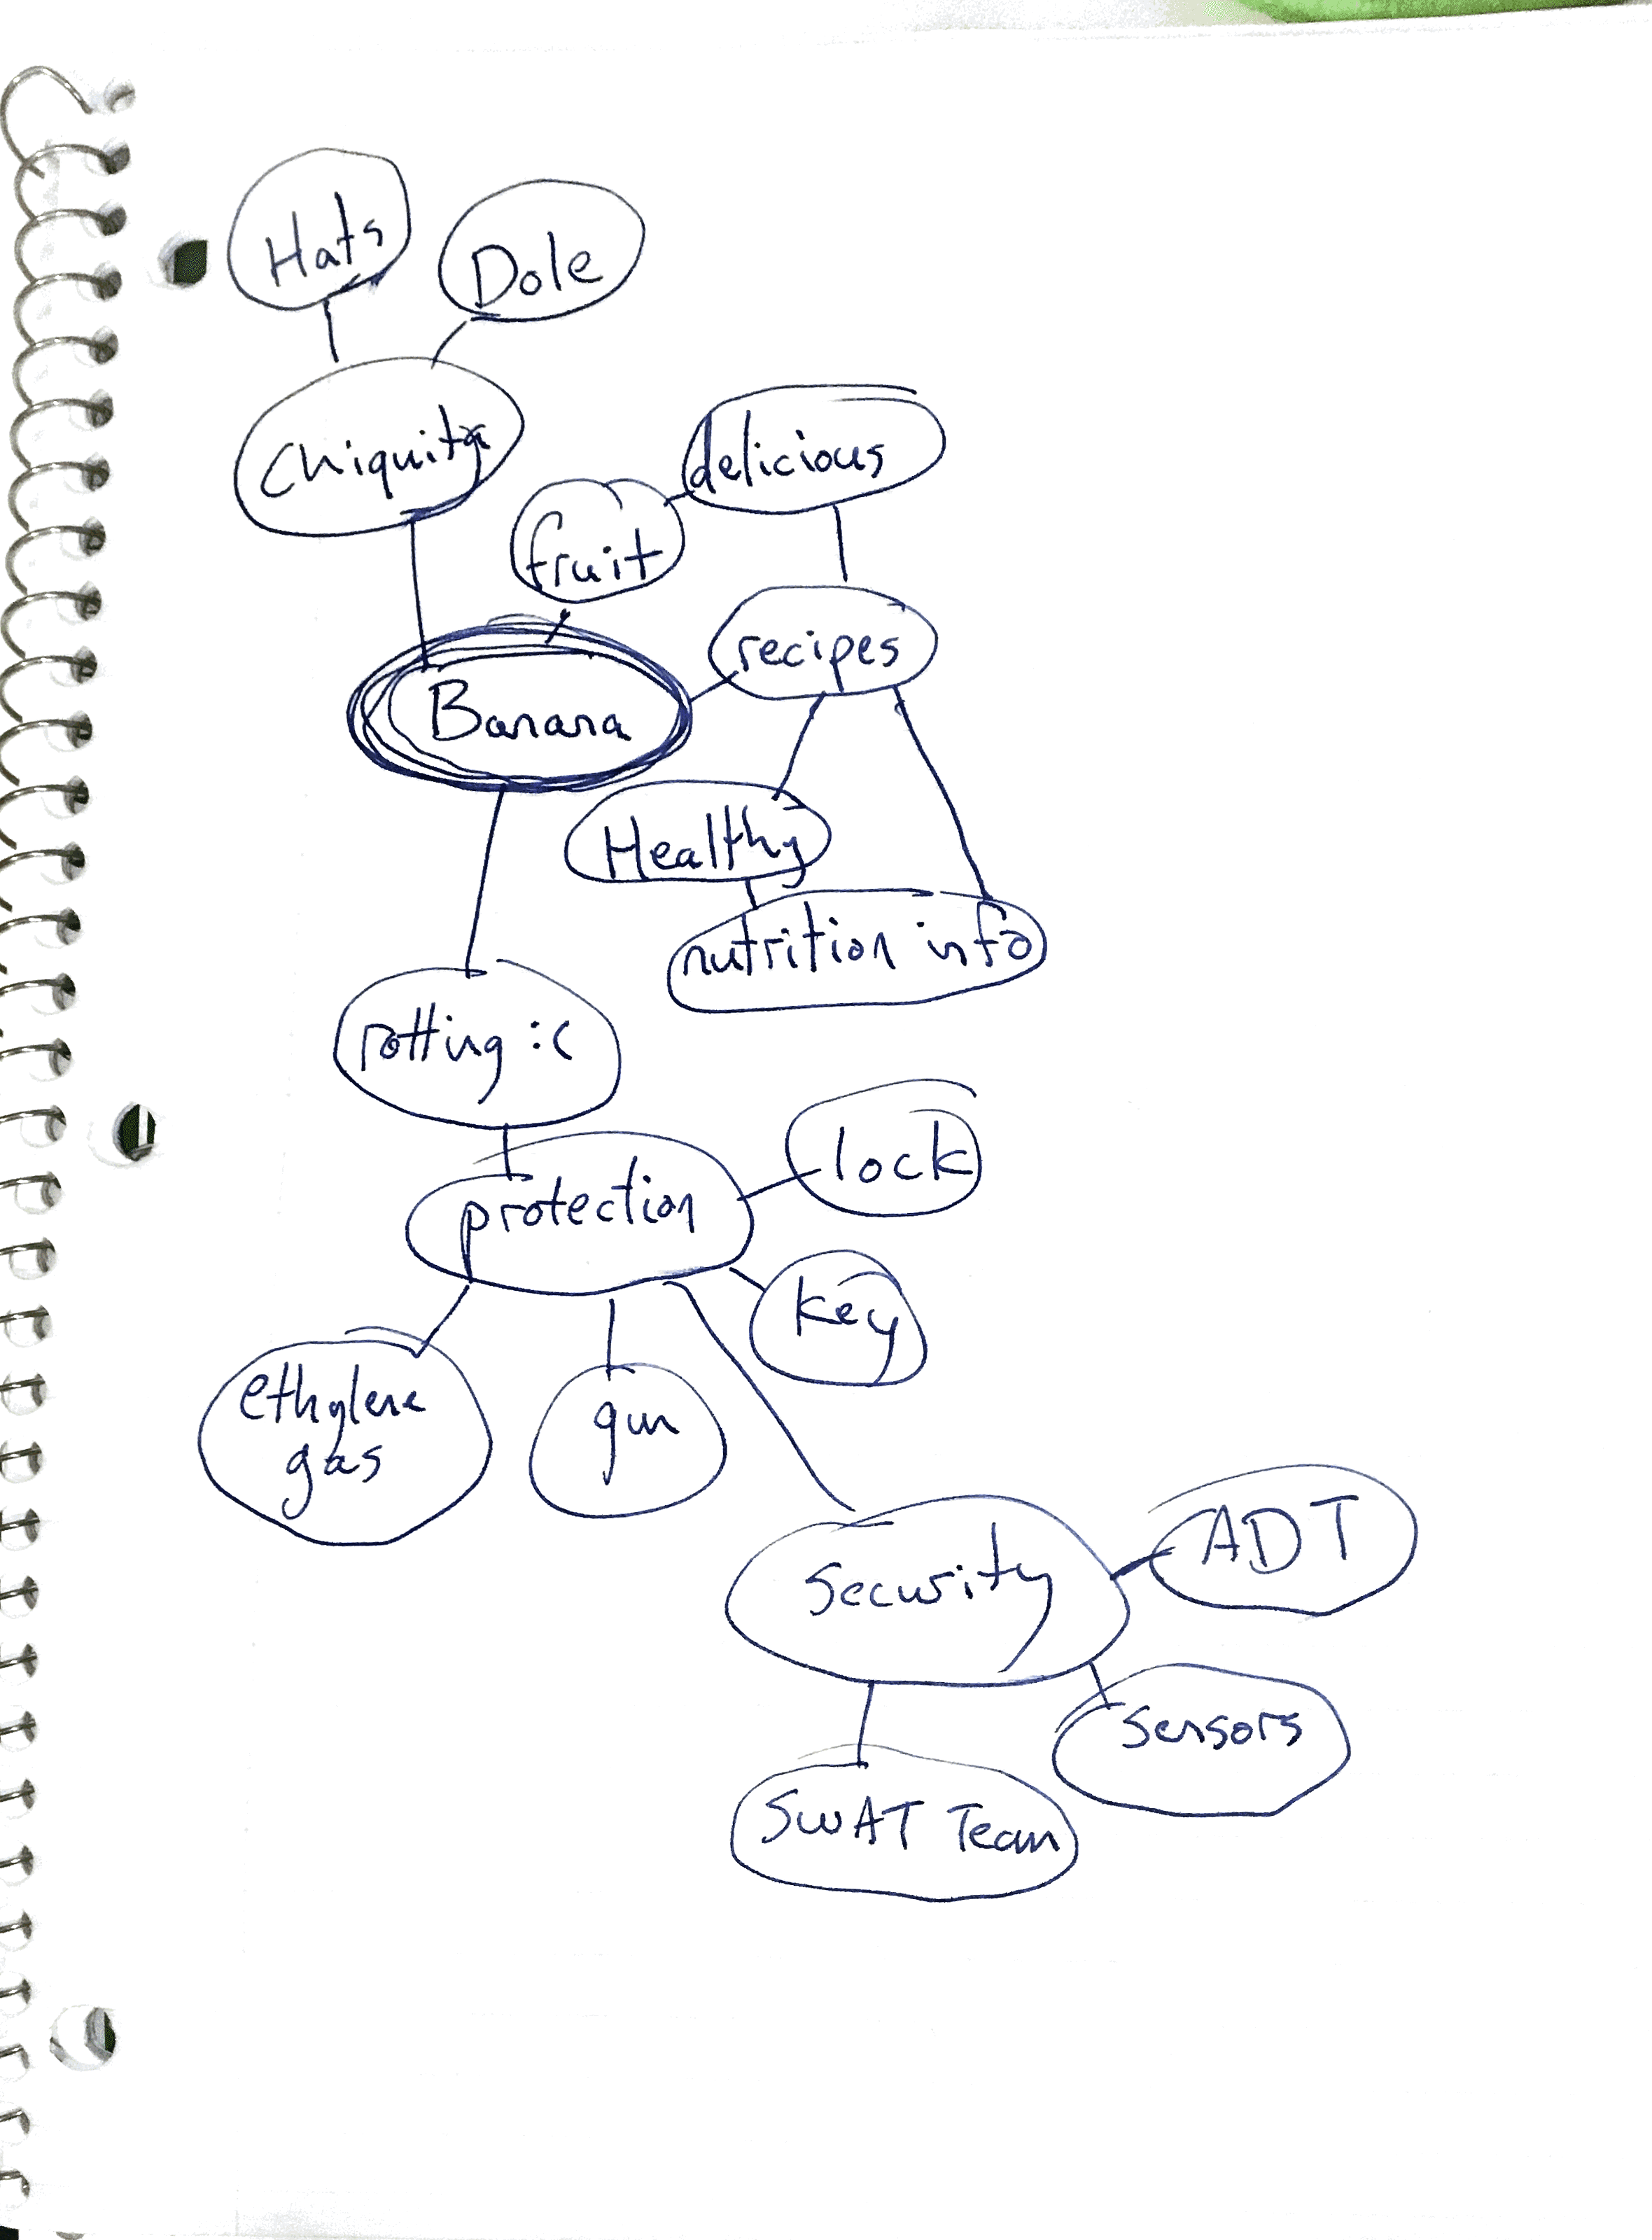 Hats
Dole
Chiquita
delicious
fruit
recipes
Banana
Healthy
nutrition info
rotting :(
lock
protection
key
ethylene
gas
gun
ADT
Security
Sensors
SWAT Team